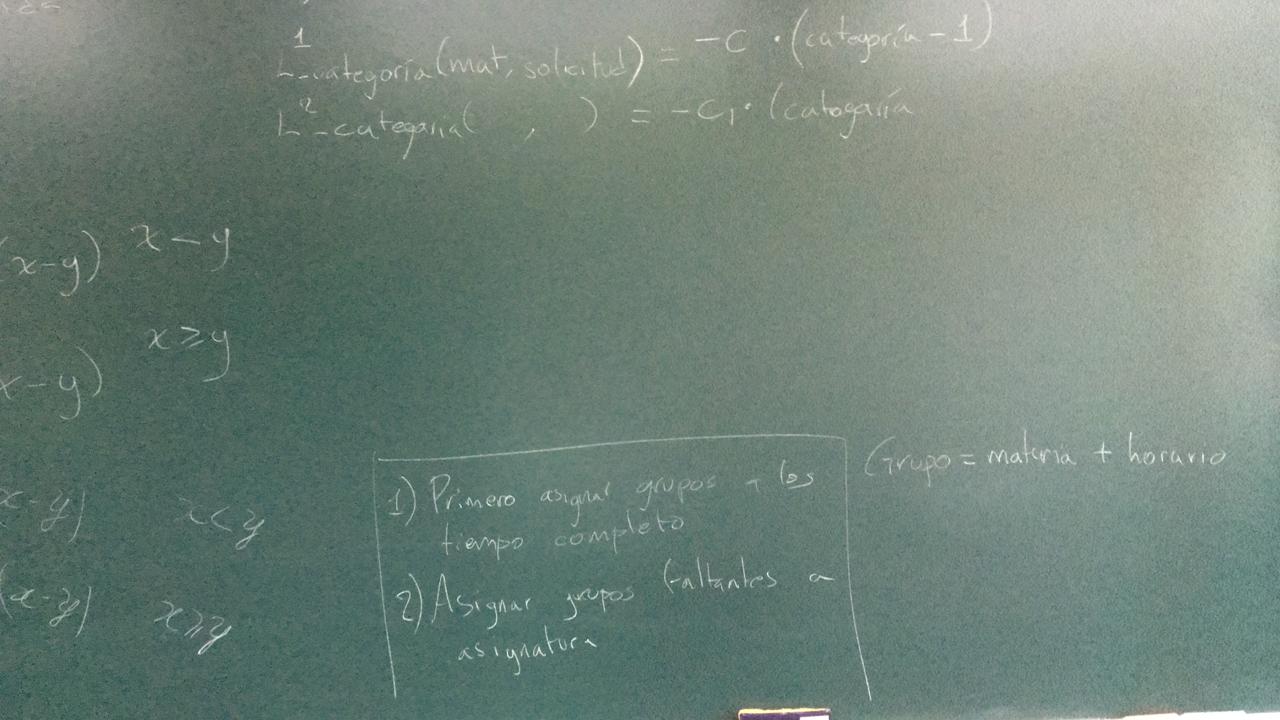 L¹-categoría(mat, solicitud) = -C · (categoría - 1)
L²-categoria( , ) = -C₁· (catogaría
x-y) x - y
x ≥ y
x-y)
x-y) x < y
(x-y) x ≥ y
1) Primero asignar grupos a los
tiempo completo
2) Asignar grupos faltantes a
asignatura
Grupo = materia + horario